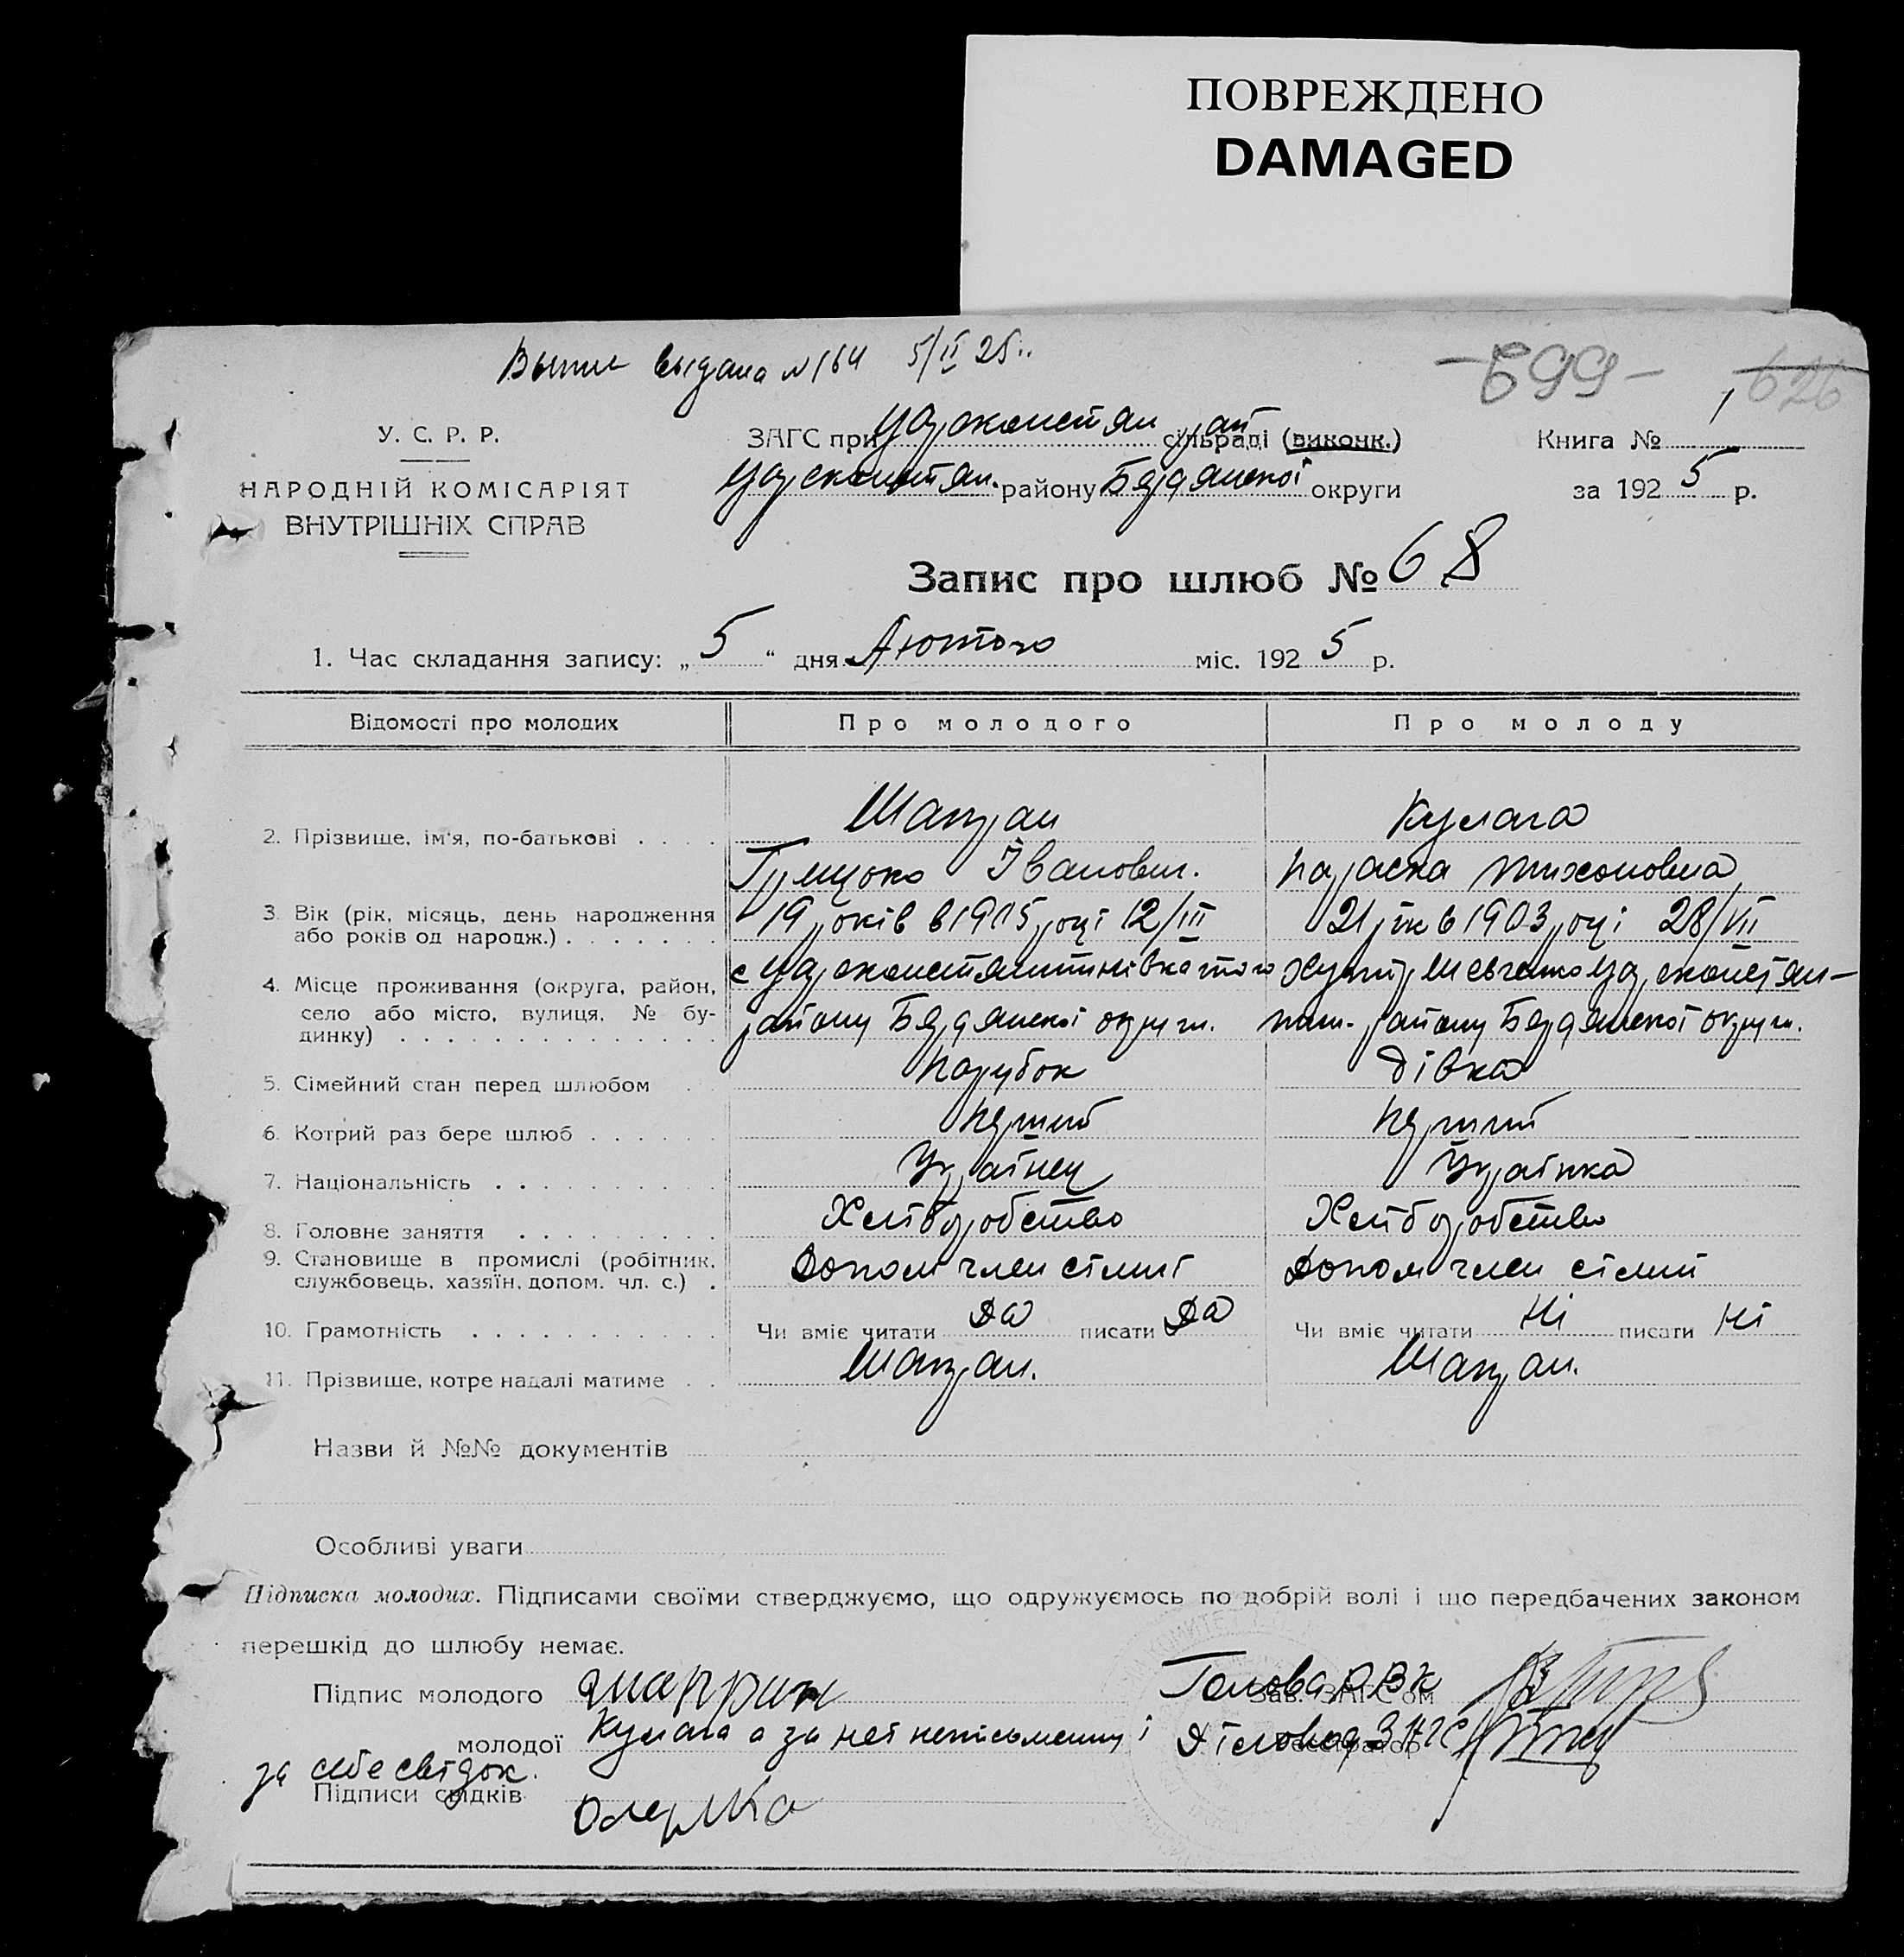 ПОВРЕЖДЕНО
DAMAGED
выдана №164 5/II 25
-699-
626
У. С. Р. Р.
НАРОДНІЙ КОМІСАРІЯТ
ВНУТРІШНІХ СПРАВ
ЗАГС при Царекостян рай сільраді (виконк.)
Царекостян. району Бердянської округи
Книга № 1
за 192 5 р.
Запис про шлюб № 68
1. Час складання запису: „ 5 “ дня Лютого міс. 192 5 р.
Відомості про молодих Про молодого Про молоду
2. Прізвище, ім'я, по-батькові . . . . Шапран Кулага
Грицько Іванович. Параска Тихоновна
3. Вік (рік, місяць, день народження 19 років в 1915 році 12/III 21 рік в 1903 році 28/VII
або років од народж.) . . . . . . .
4. Місце проживання (округа, район, с Цареконстянтинівка того Хутір Шевченко Царекостян-
село або місто, вулиця, № бу- району Бердянської округи. тин. району Бердянської округи.
динку) . . . . . . . . . . . . . .
5. Сімейний стан перед шлюбом Парубок Дівка
6. Котрий раз бере шлюб . . . . . . Перший Перший
7. Національність . . . . . . . . . Українец Українка
8. Головне заняття . . . . . . . . . Хліборобство Хліборобство
9. Становище в промислі (робітник, Допом член сімиї Допом член сімиї
службовець, хазяїн, допом. чл. с.) .
10. Грамотність . . . . . . . . . . . Чи вміє читати Да писати Да Чи вміє читати Ні писати Ні
11. Прізвище, котре надалі матиме . . Шапран. Шапран.
Назви й №№ документів
Особливі уваги
Підписка молодих. Підписами своїми стверджуємо, що одружуємось по добрій волі і що передбачених законом
перешкід до шлюбу немає.
Підпис молодого Шапран Голова РВК
Зав. ЗАГС'ом
молодої Кулага а за неї неписьменну і Діловод ЗАГС
Реєстратор
за себе свідок.
Підписи свідків